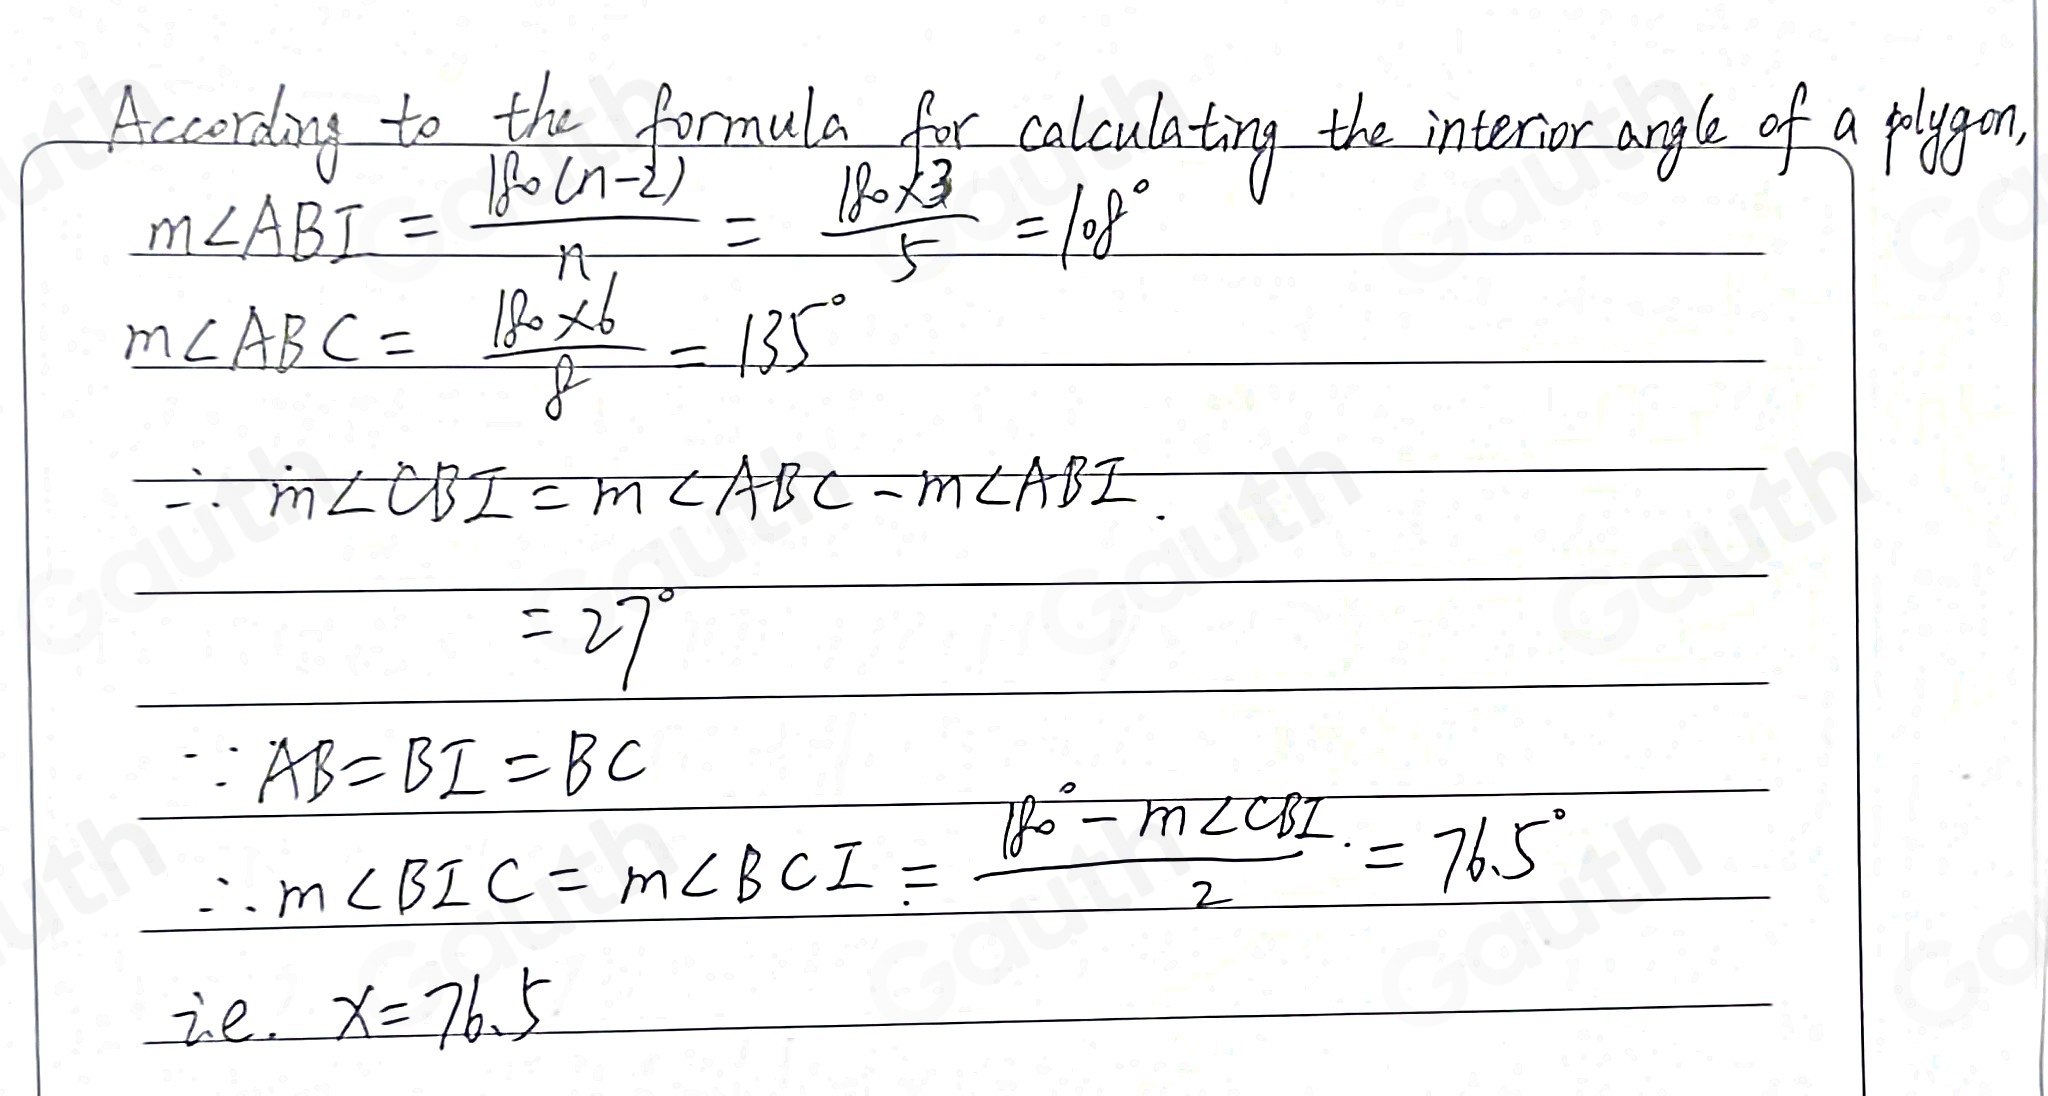 According to the formula for calculating the interior angle of a polygon,
m∠ABI = 180(n-2)/n = 180×3/5 = 108°
m∠ABC = 180×6/8 = 135°
∴ m∠CBI = m∠ABC - m∠ABI.
= 27°
∵ AB = BI = BC
∴ m∠BIC = m∠BCI = 180° - m∠CBI/2 = 76.5°
i.e. x = 76.5
Gauth